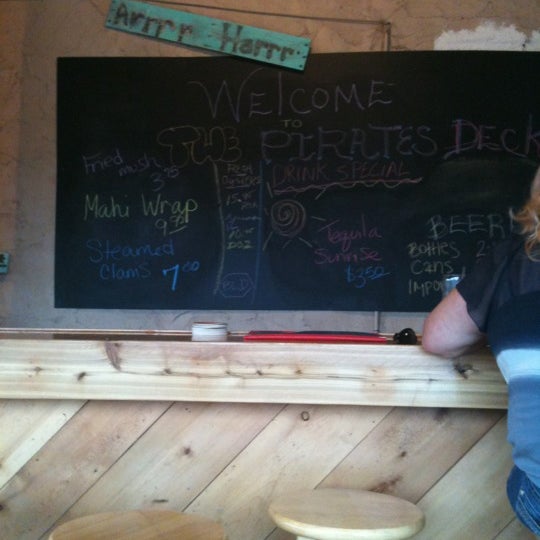 Arrr r Harrr
WELCOME
TO
THE PIRATES DECK
Fried
mush
3.75
Mahi Wrap
9.75
Steamed
Clams 7.00
DOZ
DRINK SPECIAL
Tequila
Sunrise
$3.50
BEER
Bottles
Cans
Impor